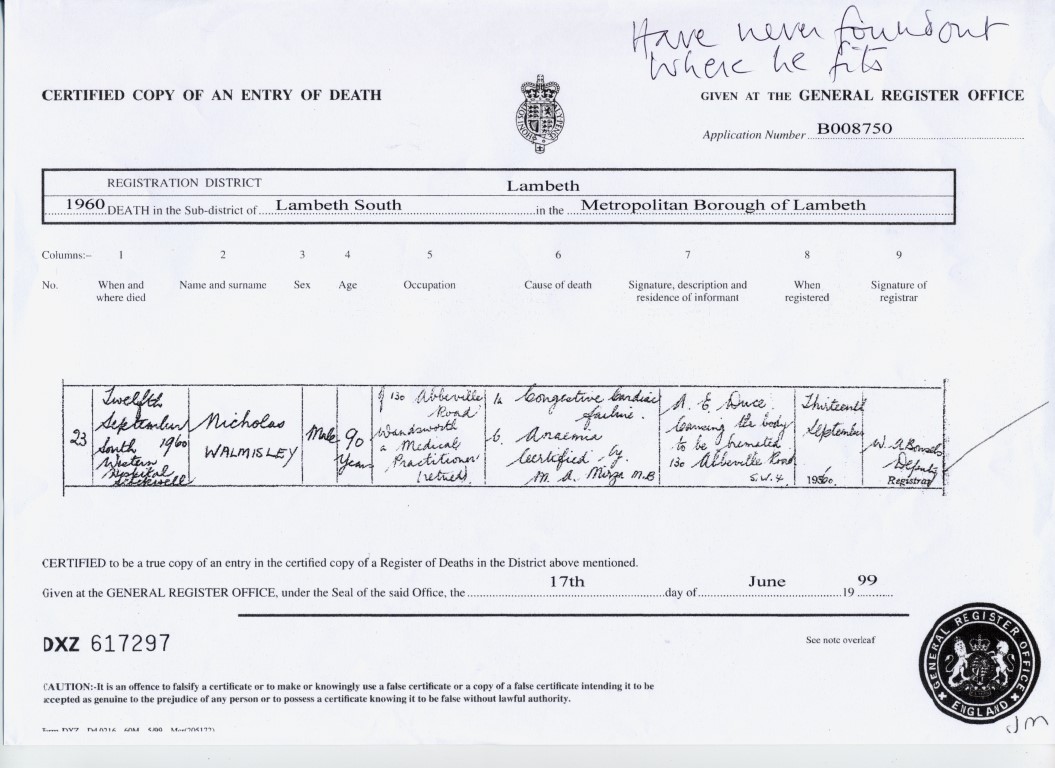 Have never found out
where he fits
CERTIFIED COPY OF AN ENTRY OF DEATH
GIVEN AT THE GENERAL REGISTER OFFICE
Application Number B008750
REGISTRATION DISTRICT Lambeth
1960 DEATH in the Sub-district of Lambeth South in the Metropolitan Borough of Lambeth
Columns:– 1 2 3 4 5 6 7 8 9
No. When and where died Name and surname Sex Age Occupation Cause of death Signature, description and residence of informant When registered Signature of registrar
23
Twelfth
September
1960
South
Western
Hospital
Stockwell
Nicholas
WALMISLEY
Male
90
Years
of 130 Abbeville
Road
Wandsworth
a Medical
Practitioner
(retired)
Congestive Cardiac
failure.
b. Anaemia
Certified by
M. A. Mirza M.B
A. E. Duce
Causing the body
to be cremated
130 Abbeville Road
S.W.4.
Thirteenth
September
1960.
Deputy
Registrar
CERTIFIED to be a true copy of an entry in the certified copy of a Register of Deaths in the District above mentioned.
Given at the GENERAL REGISTER OFFICE, under the Seal of the said Office, the 17th day of June 19 99
DXZ 617297
See note overleaf
CAUTION:-It is an offence to falsify a certificate or to make or knowingly use a false certificate or a copy of a false certificate intending it to be
accepted as genuine to the prejudice of any person or to possess a certificate knowing it to be false without lawful authority.
GENERAL REGISTER OFFICE
ENGLAND
JM